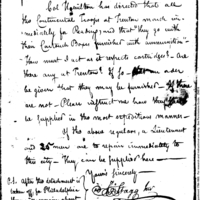 Col Hamilton has directed that all
the Continental troops at Trenton march im-
mediately for Reading; and that "they go with
their Cartouch Boxes furnished with ammunition"—
How must I act as it respects cartridges? Are
there any at Trenton? If so an order
be given that they may be furnished. If there
are not. Please instruct me how they
be supplied in the most expeditious manner.
Of the above regulars, a Lieutenant
and 20 men are to repair immediately to
this city— They can be supplied here—
Yours sincerely
P.S. after the detachment is
taken off for Philadelphia